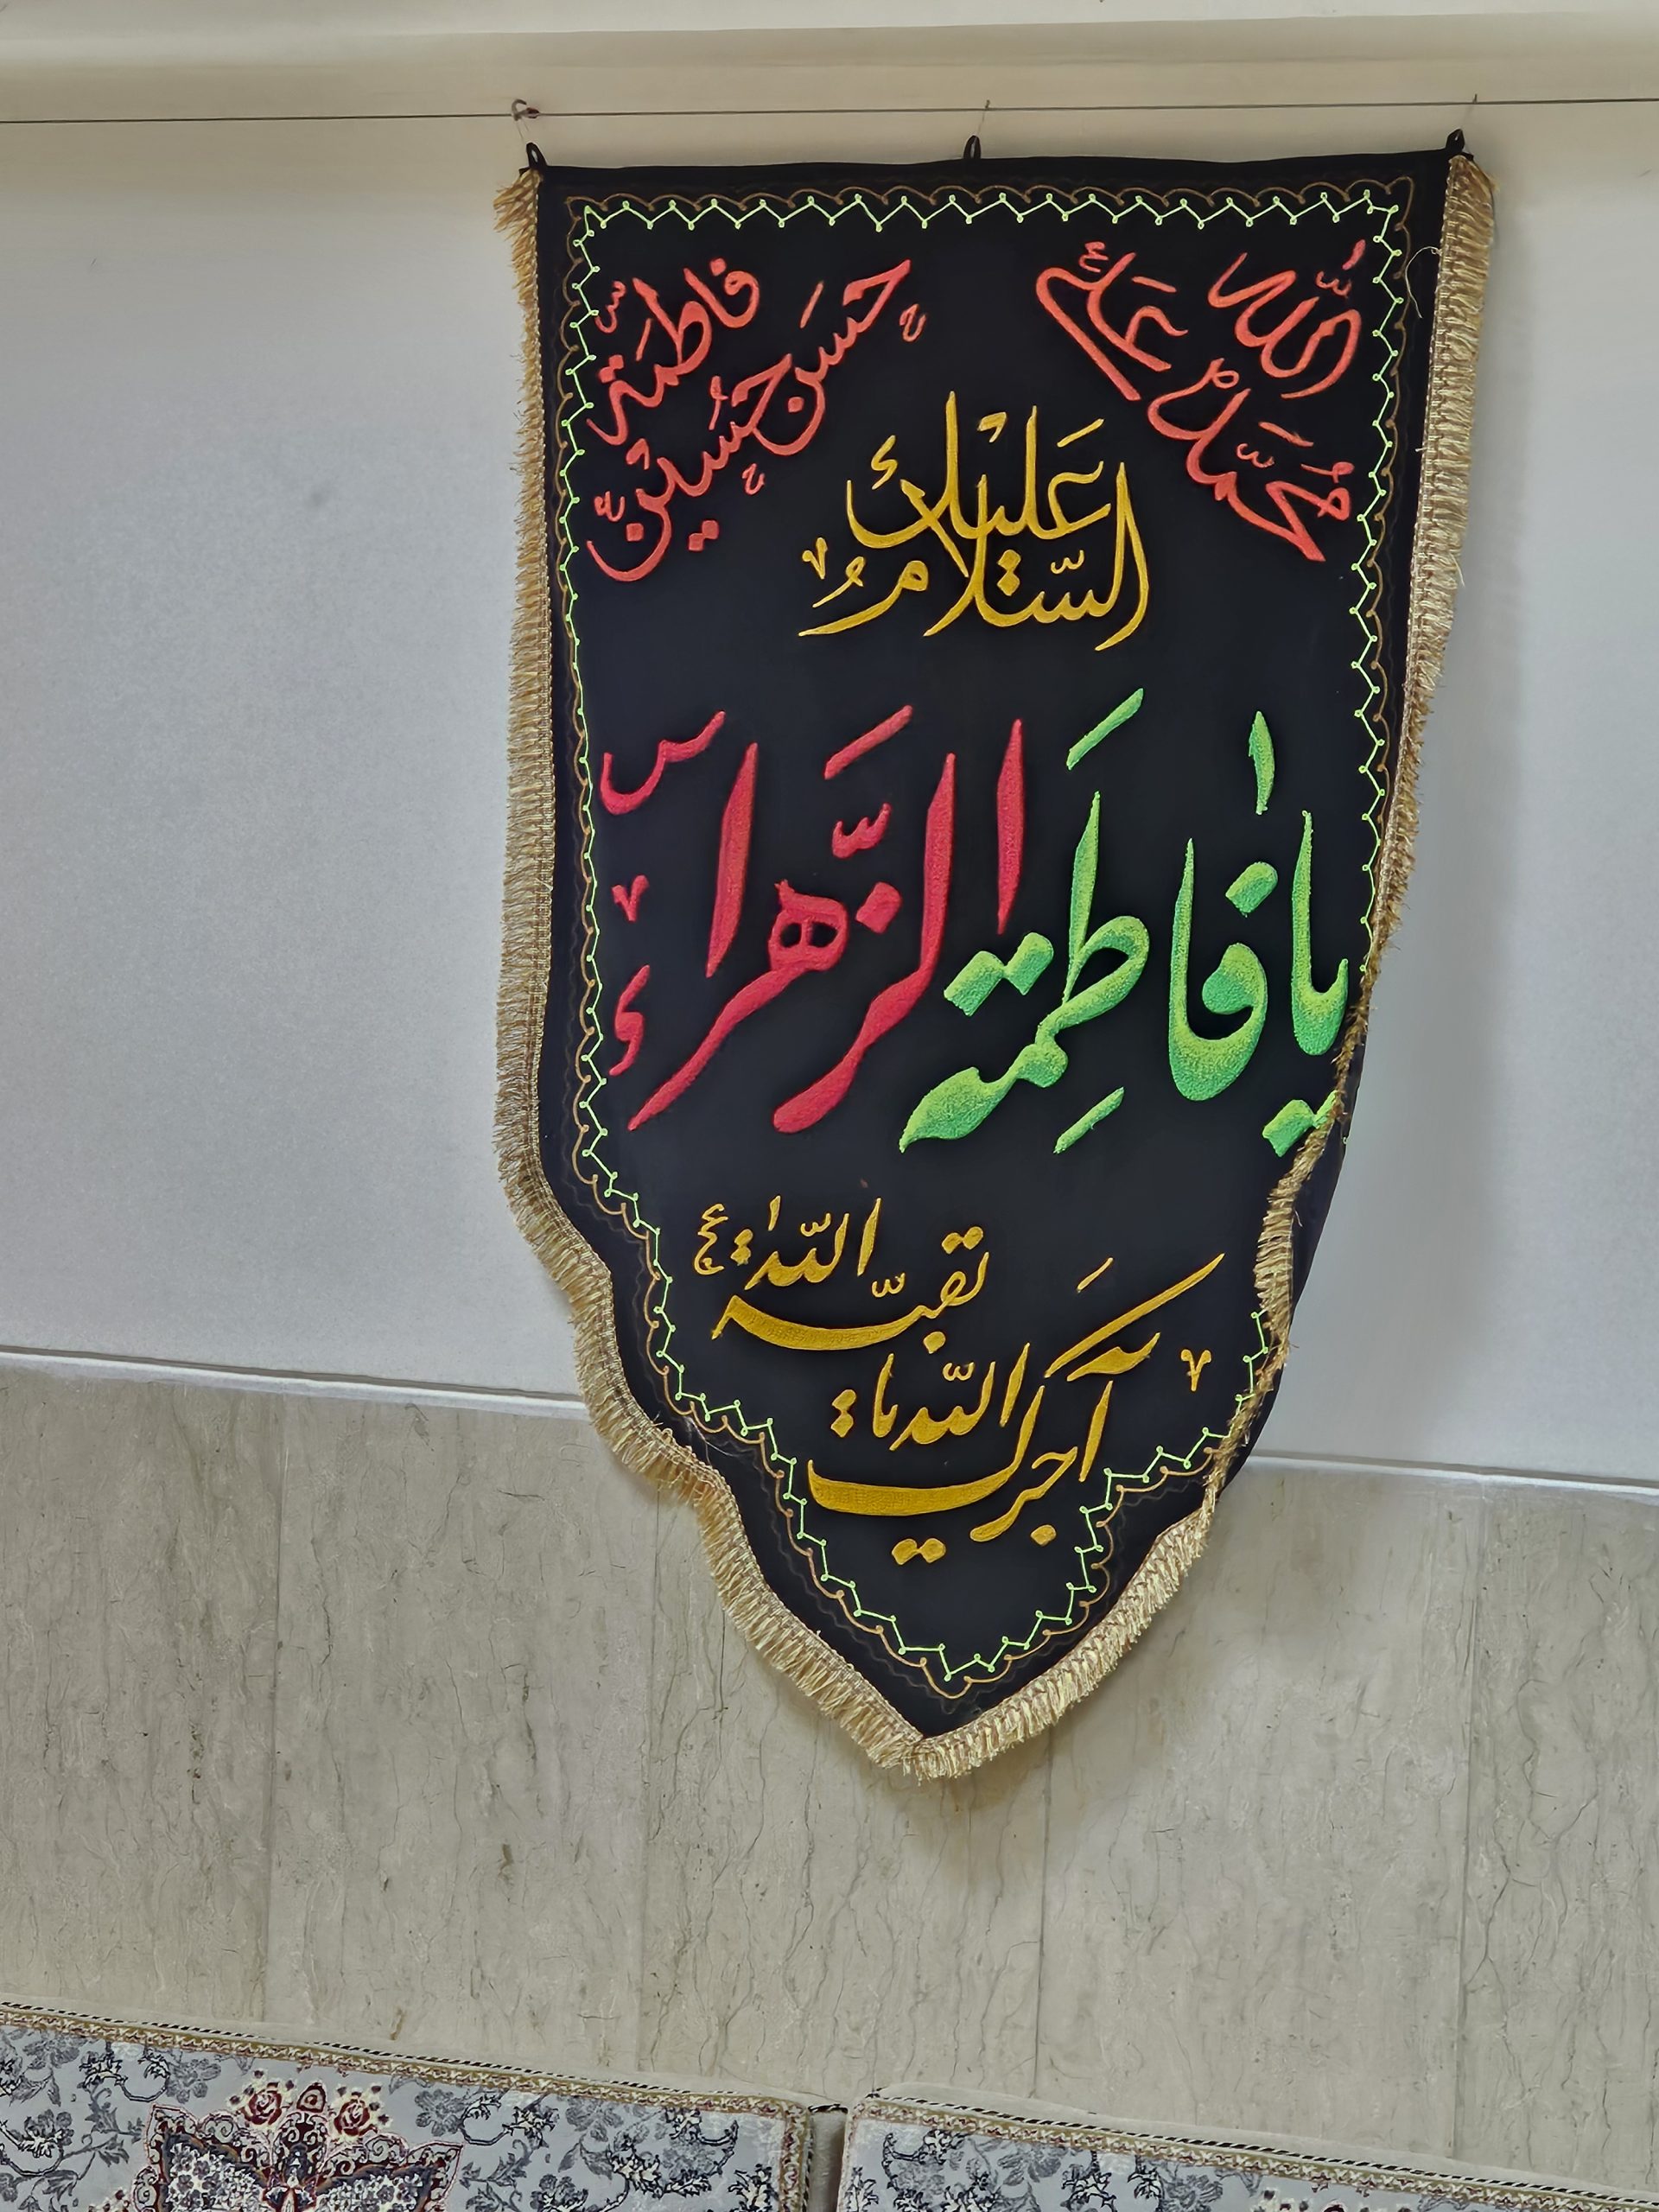 اللّٰه
محمّد علی ع
فاطمة س
حسن ع حسین ع
السّلام علیك
یا فاطِمَة الزّهراء س
آجرک اللّه یا
بقیّة اللّٰه عج